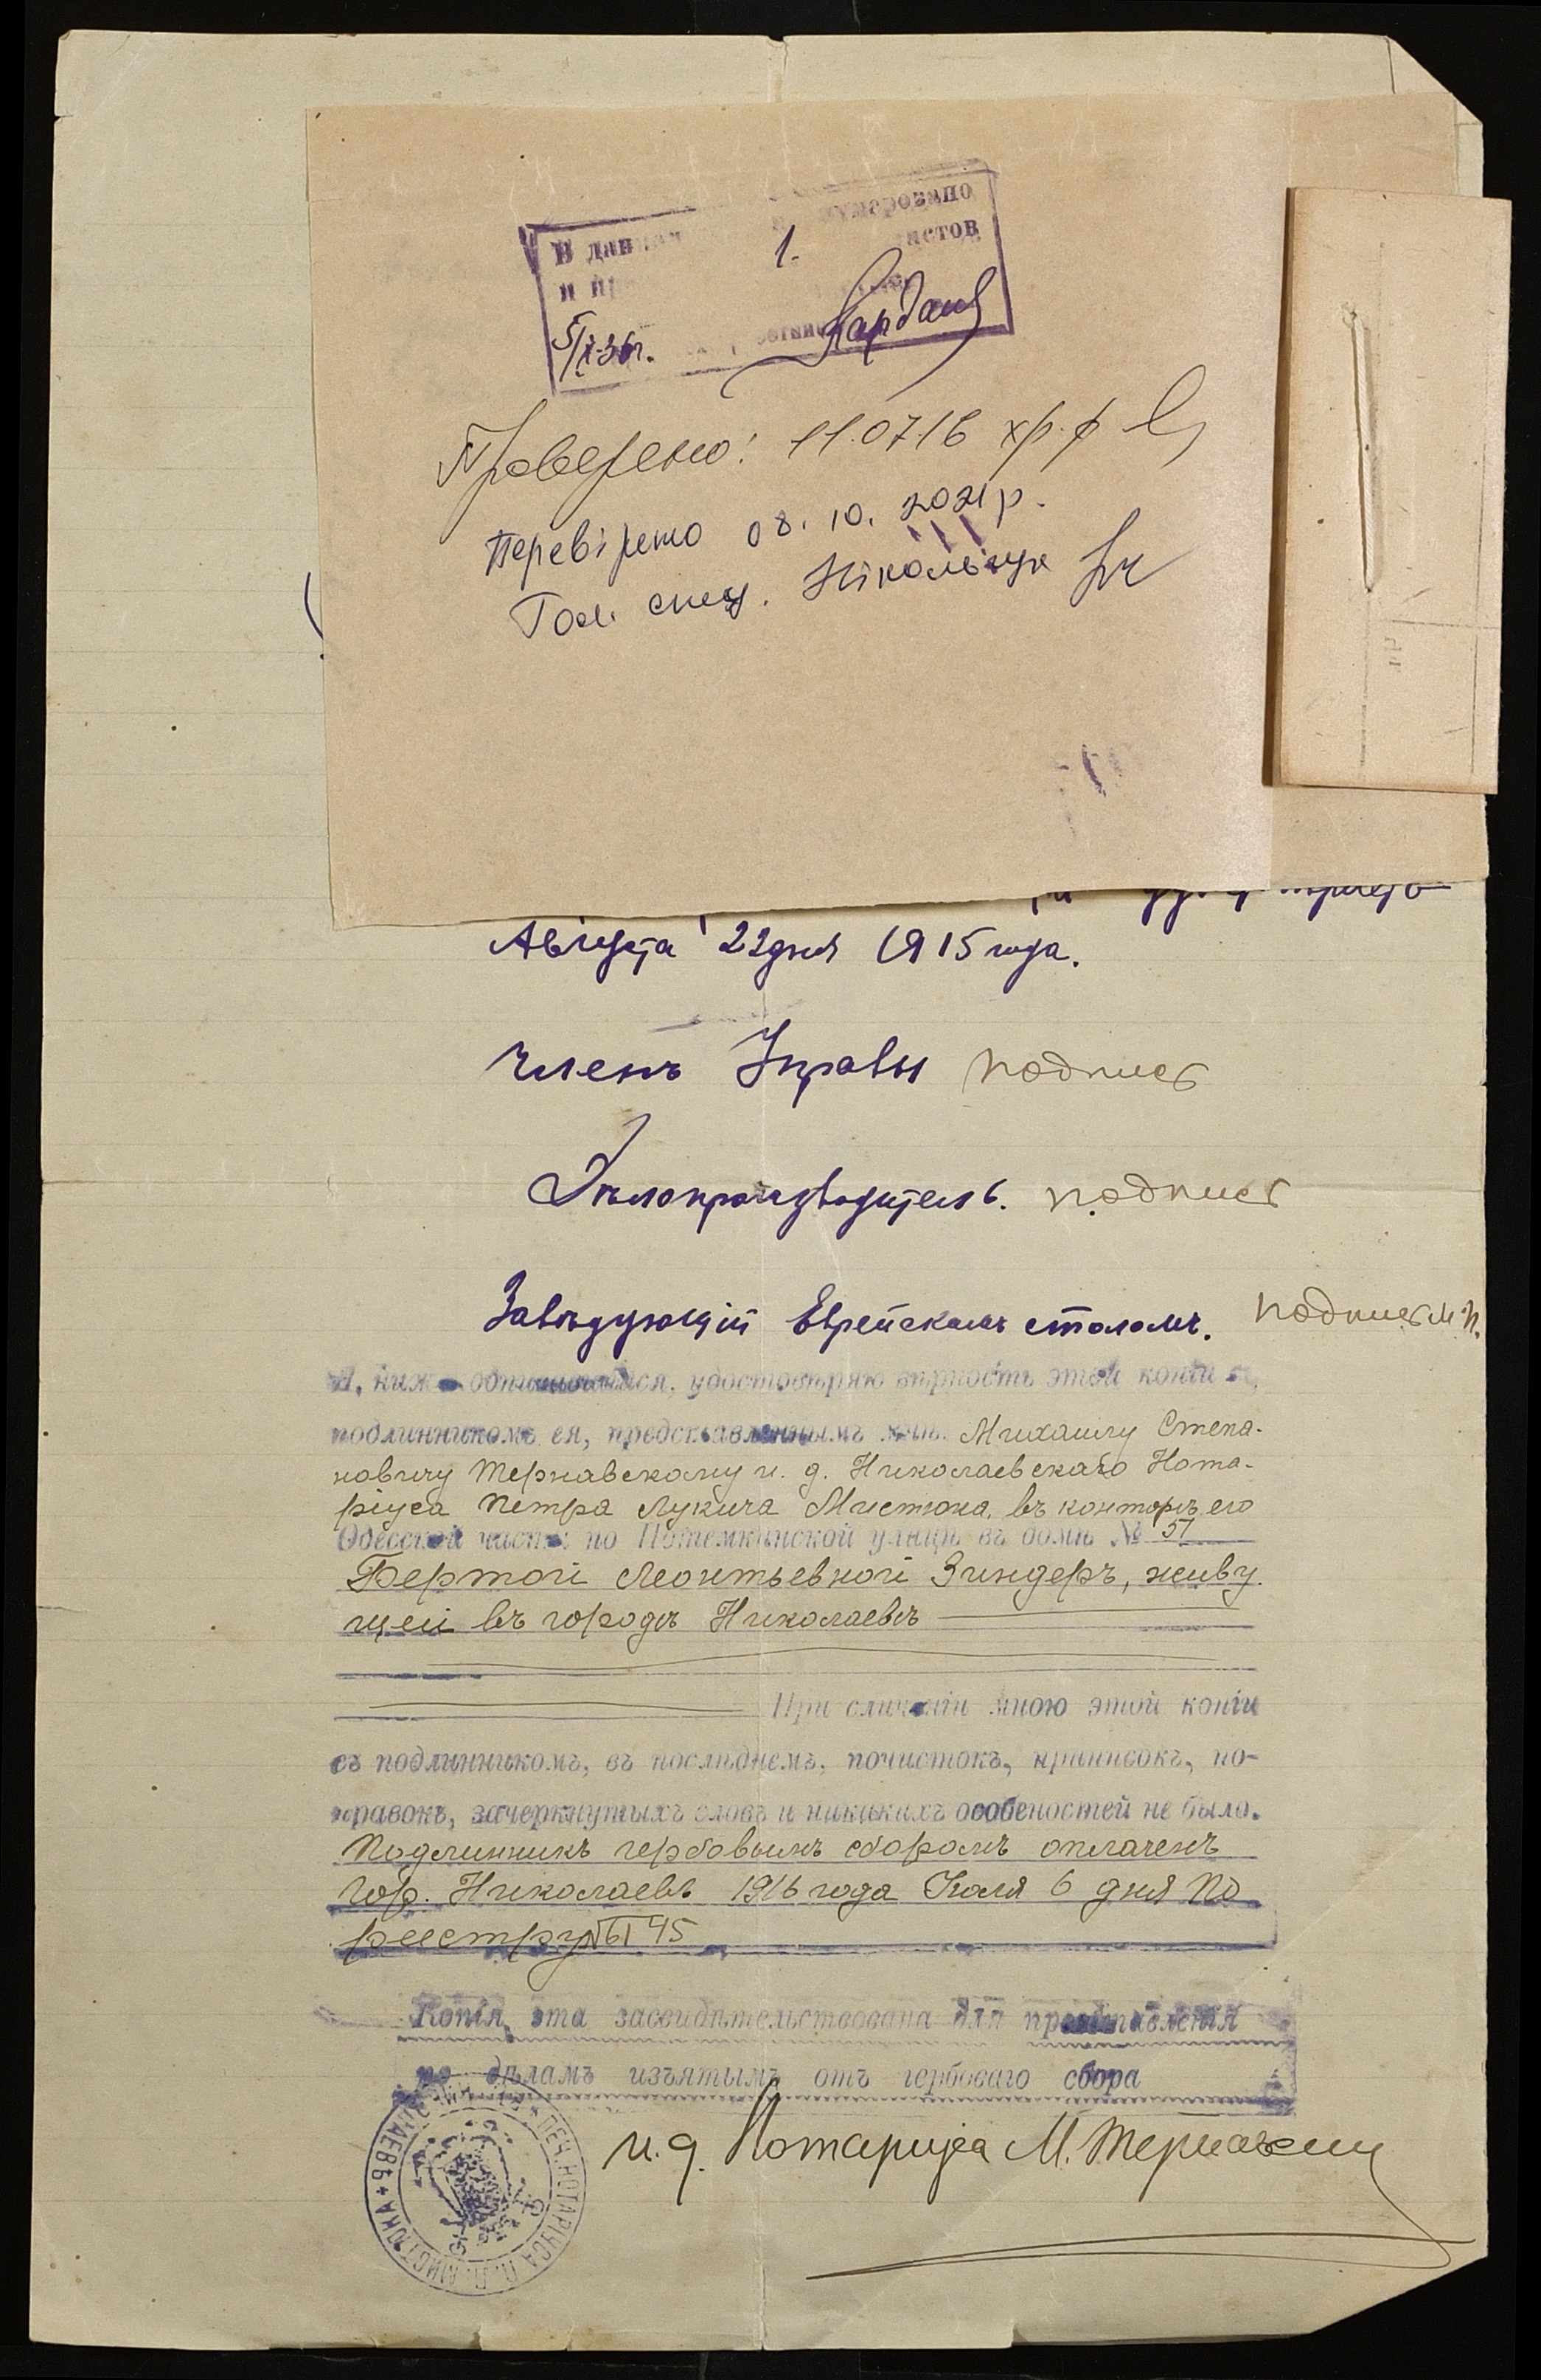 В данном нумеровано
1. листов
и пр
5/X-36г.
Проверено: 11.07.16 хр.ф
Перевірено 08.10.2021р.
Гол. спец. Нікольчук
Августа 22 дня 1915 года.
Членъ Управы подпись
Дѣлопроизводитель. подпись
Завѣдующій Еврейскимъ столомъ. подпись М.П.
Я, нижеподписавшійся, удостовѣряю вѣрность этой копіи съ
подлинникомъ ея, представленнымъ мнѣ. Михаилу Степа-
новичу Тернавскому и. д. Николаевскаго Нота-
ріуса Петра Лукича Мистюка, въ конторѣ его
Одесской части по Потемкинской улицѣ въ домѣ № 57
Бертой Леонтьевной Зиндеръ, живу-
щей въ городѣ Николаевѣ
При сличеніи мною этой копіи
съ подлинникомъ, въ послѣднемъ, почистокъ, приписокъ, по-
правокъ, зачеркнутыхъ словъ и никакихъ особеностей не было.
Подлинникъ гербовымъ сборомъ оплаченъ
Гор. Николаевъ 1916 года Іюля 6 дня По
реестру №
Копія эта засвидѣтельствована для представленія
по дѣламъ изъятымъ отъ гербоваго сбора
и. д. Нотаріуса М. Тернавскій
ПЕЧ. НОТАРІУСА П. Л. МИСТЮКА